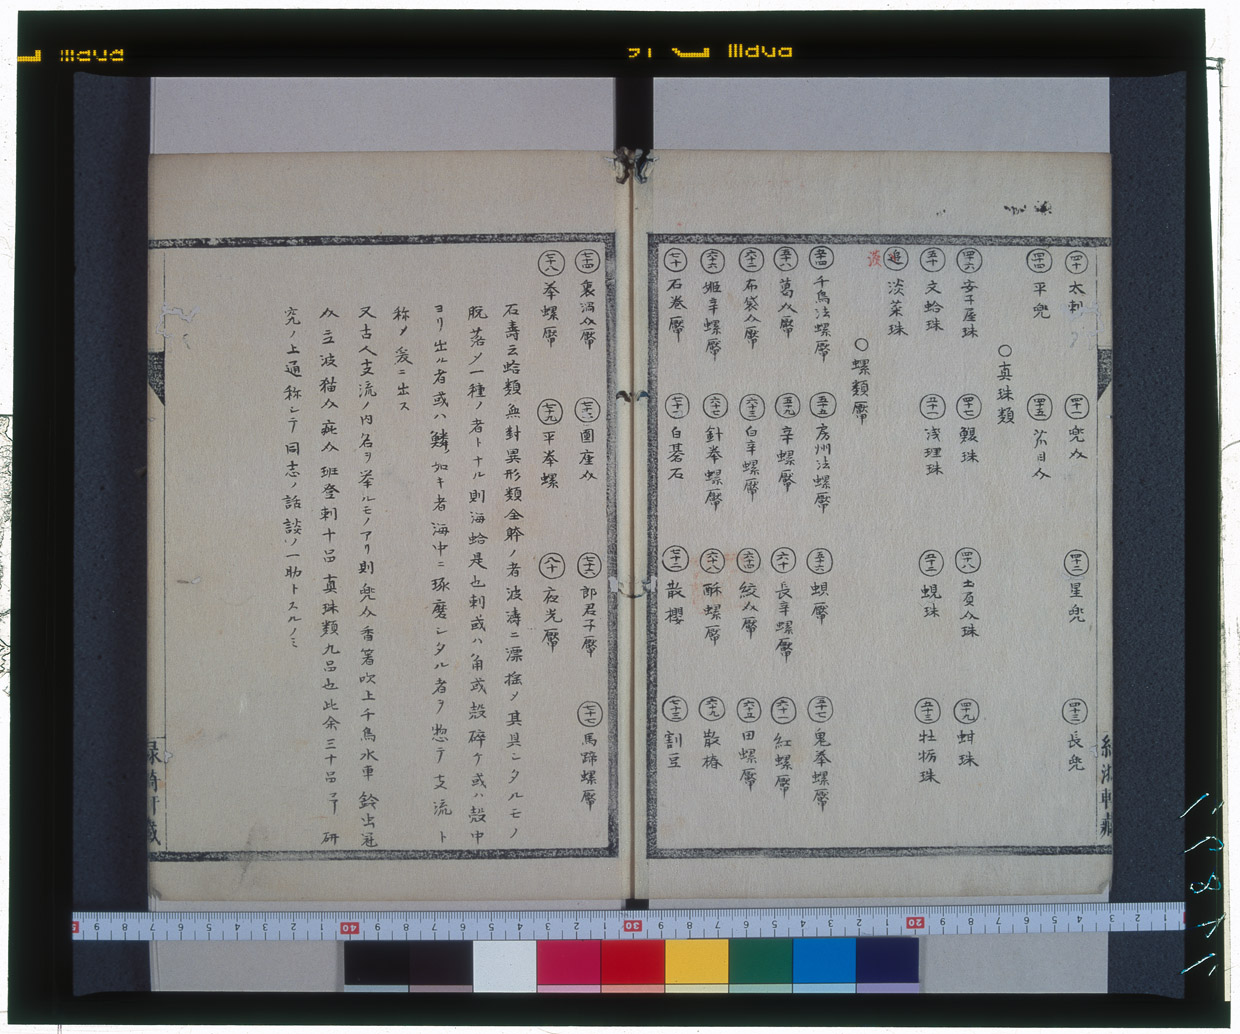 四十 太刺
四十一 兜介
四十二 星兜
四十三 長兜
四十四 平兜
四十五 笏目介
○真珠類
四十六 安子屋珠
四十七 鰒珠
四十八 土負介珠
四十九 蚶珠
五十 文蛤珠
五十一 浅理珠
五十二 蜆珠
五十三 牡蛎珠
追 淡菜珠
○螺類厴
五十四 千鳥法螺厴
五十五 房州法螺厴
五十六 蛽厴
五十七 鬼拳螺厴
五十八 葛介厴
五十九 辛螺厴
六十 長辛螺厴
六十一 紅螺厴
六十二 布袋介厴
六十三 白辛螺厴
六十四 絞介厴
六十五 田螺厴
六十六 姫辛螺厴
六十七 針拳螺厴
六十八 酥螺厴
六十九 散椿
七十 石巻厴
七十一 白碁石
七十二 散櫻
七十三 割豆
七十四 裏渦介厴
七十五 圓座介
七十六 郎君子厴
七十七 馬蹄螺厴
七十八 拳螺厴
七十九 平拳螺
八十 夜光厴
石壽云蛤類無対異形類全躰ノ者波濤ニ漂揺メ其具シタルモノ
脱落メ一種ノ者トナル則海蛤是也刺或ハ角或殻碎ケ或ハ殻中
ヨリ出ル者或ハ鱗ノ如キ者海中ニ琢磨シタル者ヲ惣テ支流ト
称メ爰ニ出ス
又古人支流ノ内名ヲ挙ルモノアリ則兜介香箸吹上千鳥水車鈴出冠
介立波猫介疣介班登刺十品真珠類九品也此余三十品予研
究ノ上通称シテ同志ノ話談ノ一助トスルノミ